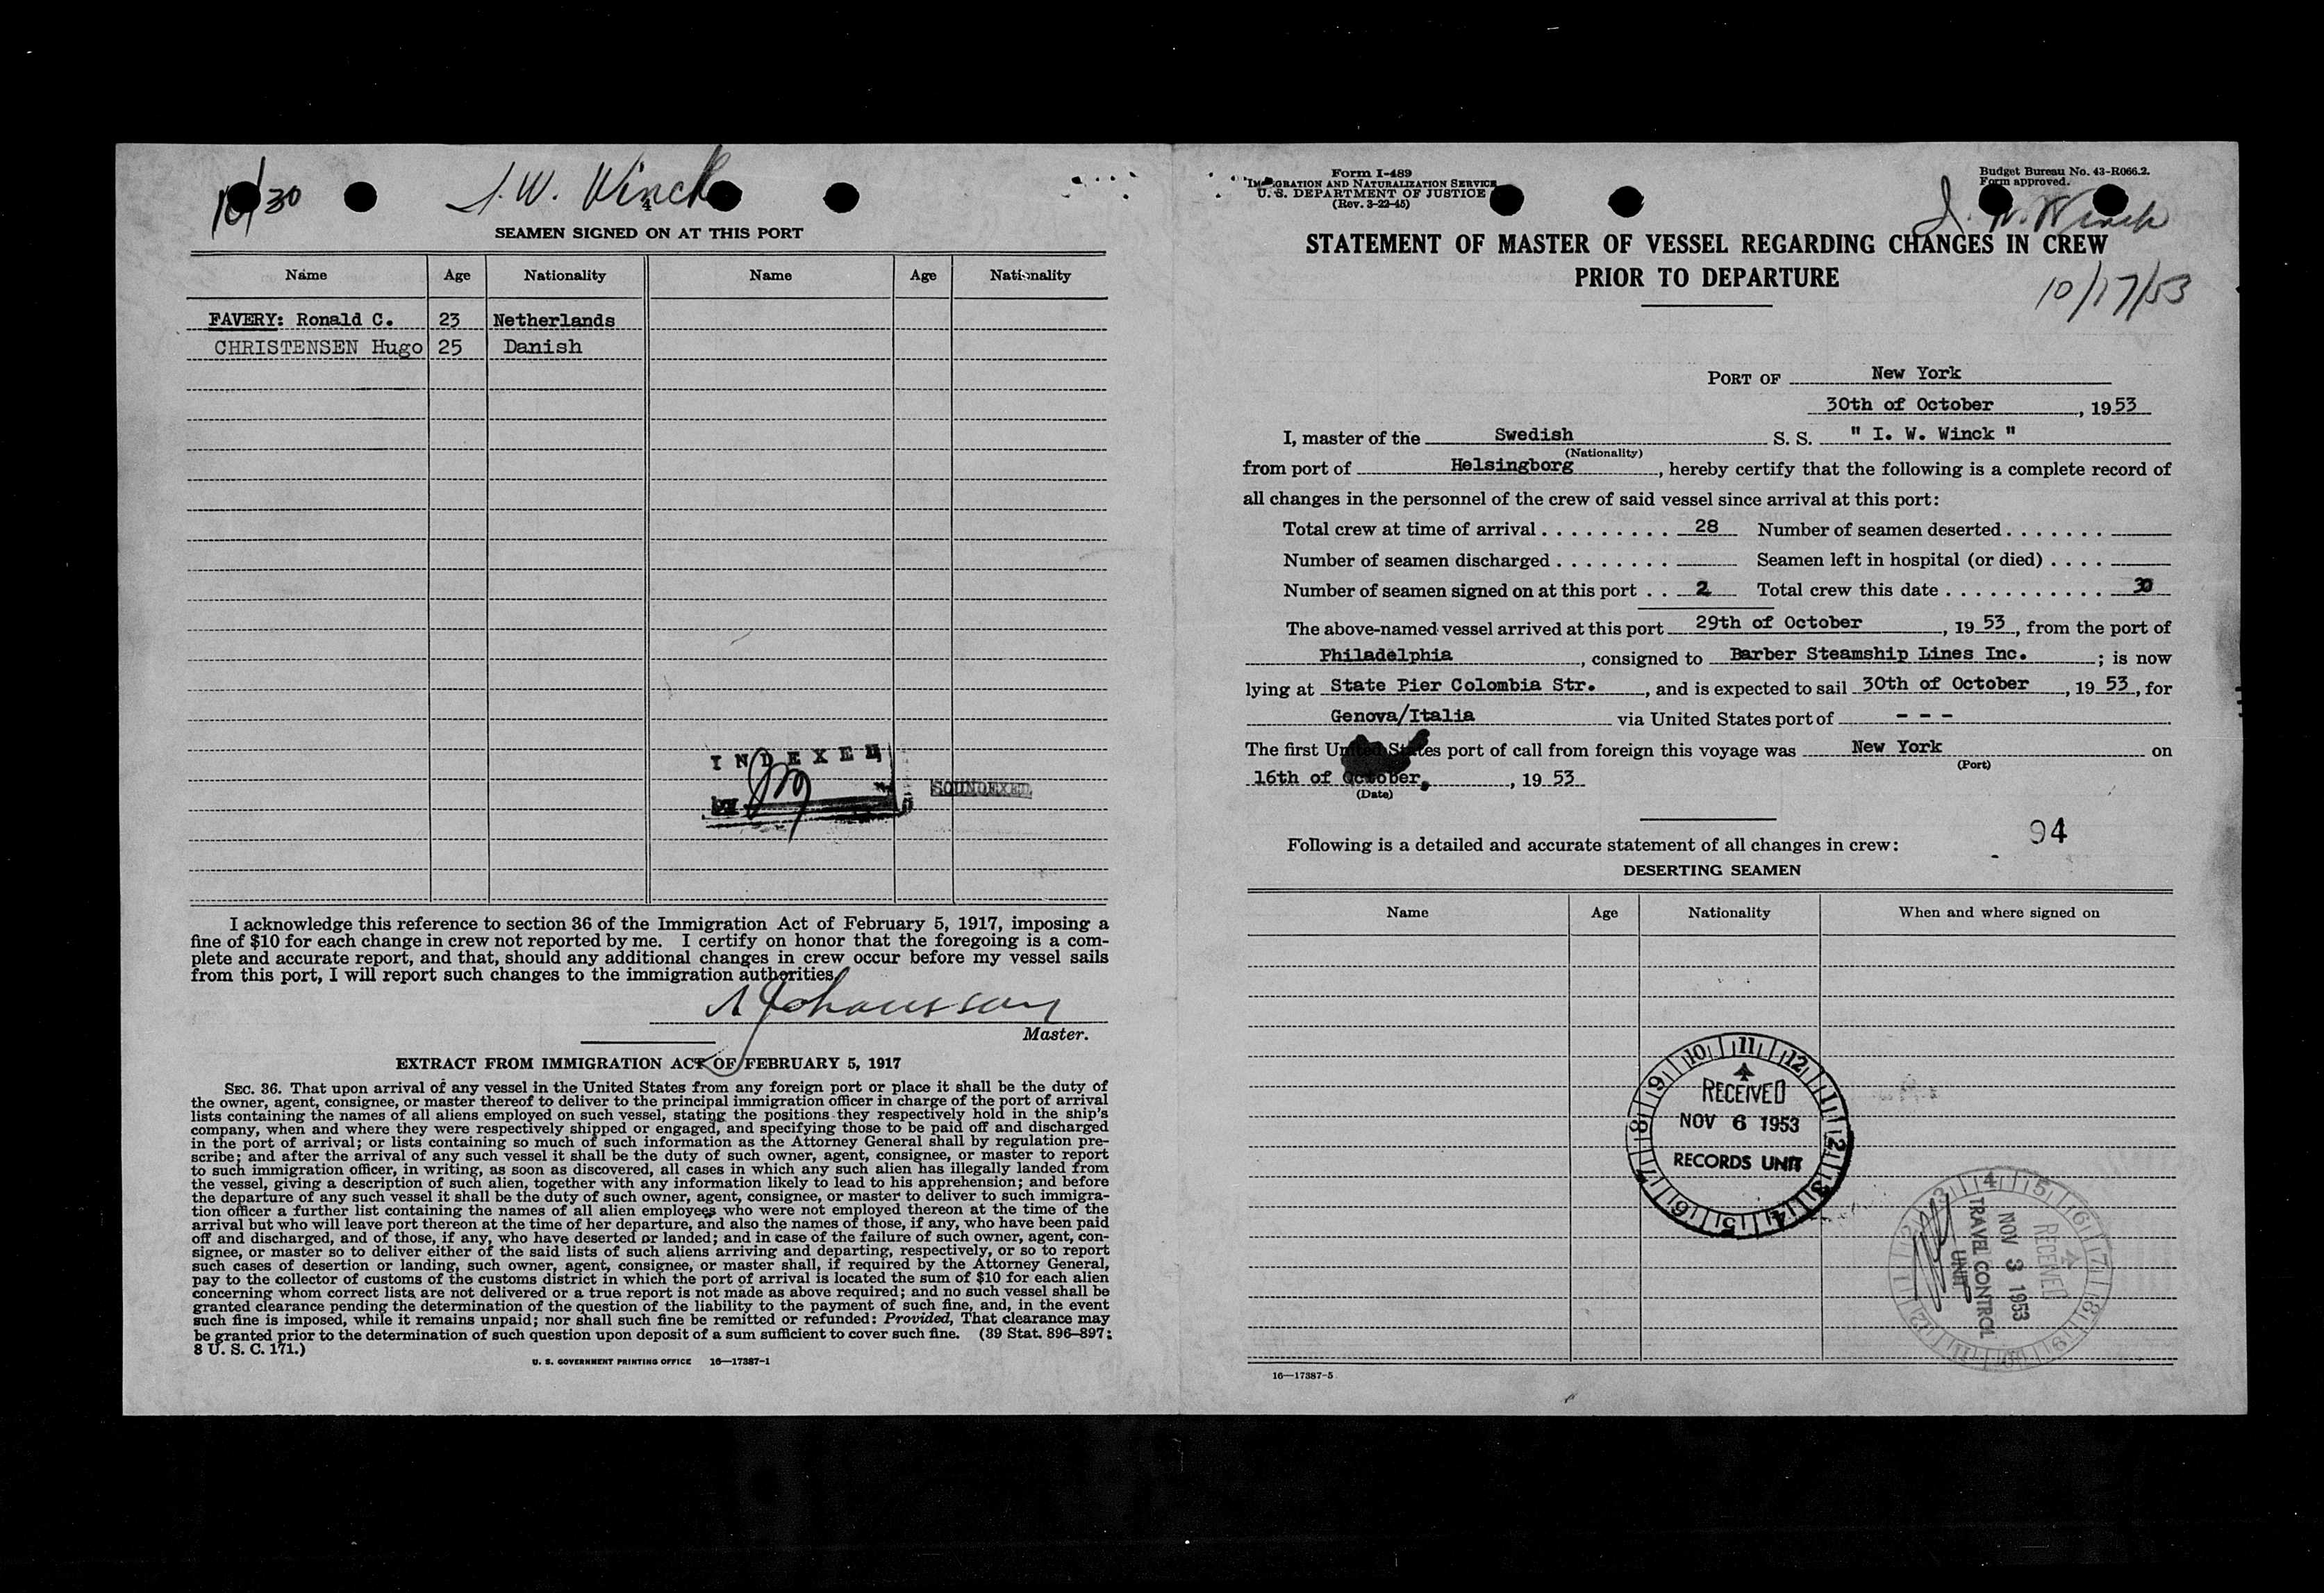 10/30
I. W. Winck
4
SEAMEN SIGNED ON AT THIS PORT
Name Age Nationality Name Age Nationality
FAVERY: Ronald C. 23 Netherlands
CHRISTENSEN Hugo 25 Danish
INDEXED
SOUNDEXED
I acknowledge this reference to section 36 of the Immigration Act of February 5, 1917, imposing a
fine of $10 for each change in crew not reported by me. I certify on honor that the foregoing is a com-
plete and accurate report, and that, should any additional changes in crew occur before my vessel sails
from this port, I will report such changes to the immigration authorities.
A Johansson
Master.
EXTRACT FROM IMMIGRATION ACT OF FEBRUARY 5, 1917
SEC. 36. That upon arrival of any vessel in the United States from any foreign port or place it shall be the duty of
the owner, agent, consignee, or master thereof to deliver to the principal immigration officer in charge of the port of arrival
lists containing the names of all aliens employed on such vessel, stating the positions they respectively hold in the ship's
company, when and where they were respectively shipped or engaged, and specifying those to be paid off and discharged
in the port of arrival; or lists containing so much of such information as the Attorney General shall by regulation pre-
scribe; and after the arrival of any such vessel it shall be the duty of such owner, agent, consignee, or master to report
to such immigration officer, in writing, as soon as discovered, all cases in which any such alien has illegally landed from
the vessel, giving a description of such alien, together with any information likely to lead to his apprehension; and before
the departure of any such vessel it shall be the duty of such owner, agent, consignee, or master to deliver to such immigra-
tion officer a further list containing the names of all alien employees who were not employed thereon at the time of the
arrival but who will leave port thereon at the time of her departure, and also the names of those, if any, who have been paid
off and discharged, and of those, if any, who have deserted or landed; and in case of the failure of such owner, agent, con-
signee, or master so to deliver either of the said lists of such aliens arriving and departing, respectively, or so to report
such cases of desertion or landing, such owner, agent, consignee, or master shall, if required by the Attorney General,
pay to the collector of customs of the customs district in which the port of arrival is located the sum of $10 for each alien
concerning whom correct lists are not delivered or a true report is not made as above required; and no such vessel shall be
granted clearance pending the determination of the question of the liability to the payment of such fine, and, in the event
such fine is imposed, while it remains unpaid; nor shall such fine be remitted or refunded: Provided, That clearance may
be granted prior to the determination of such question upon deposit of a sum sufficient to cover such fine. (39 Stat. 896–897;
8 U. S. C. 171.)
U. S. GOVERNMENT PRINTING OFFICE 16—17387-1
Form I-489
IMMIGRATION AND NATURALIZATION SERVICE
U. S. DEPARTMENT OF JUSTICE
(Rev. 3-22-45)
Budget Bureau No. 43-R066.2.
Form approved.
I. W. Winck
STATEMENT OF MASTER OF VESSEL REGARDING CHANGES IN CREW
PRIOR TO DEPARTURE
10/17/53
PORT OF New York
30th of October, 1953
I, master of the Swedish S. S. " I. W. Winck "
(Nationality)
from port of Helsingborg, hereby certify that the following is a complete record of
all changes in the personnel of the crew of said vessel since arrival at this port:
Total crew at time of arrival . . . . . . . . . 28 Number of seamen deserted . . . . . . .
Number of seamen discharged . . . . . . . . Seamen left in hospital (or died) . . . .
Number of seamen signed on at this port . . 2 Total crew this date . . . . . . . . . . . 30
The above-named vessel arrived at this port 29th of October, 19 53, from the port of
Philadelphia, consigned to Barber Steamship Lines Inc. ; is now
lying at State Pier Colombia Str. , and is expected to sail 30th of October, 19 53, for
Genova/Italia via United States port of - - -
The first United States port of call from foreign this voyage was New York on
(Port)
16th of October, , 19 53
(Date)
94
Following is a detailed and accurate statement of all changes in crew:
DESERTING SEAMEN
Name Age Nationality When and where signed on
10 11 12 1 2 3 4 5 6 7 8 9
RECEIVED
NOV 6 1953
RECORDS UNIT
RECEIVED
NOV 3 1953
TRAVEL CONTROL
UNIT
16—17387-5